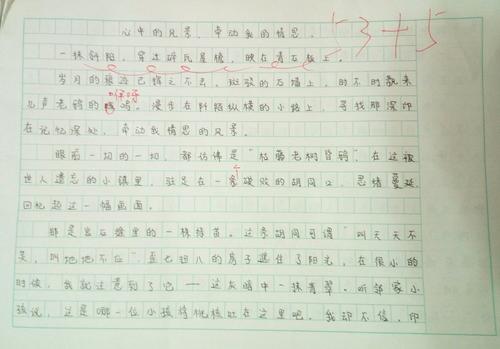 心中的风景，牵动我的情思。
53+5
一抹斜阳，穿过碎瓦屋檐，映在青石板上。
岁月的痕迹已惜之不去，斑驳的石墙上，时不时飘来
几声老鸦的鸣。漫步在阡陌纵横的小路上，寻找那深印
在记忆深处，牵动我情思的风景。
眼前一切的一切，都仿佛是“枯藤老树昏鸦”，在这被
世人遗忘的小镇里，驻足在一个破败的胡同口，思绪蔓延
回忆起这一幅画面。
那是岩石缝里的一株树苗。这条胡同可谓“叫天天不
灵，叫地地不应”，直七扭八的房子遮住了阳光，在很小的
时候，我就注意到了它——这灰暗中一抹青翠。听邻家小
孩说，这是哪一位小孩将桃核吐在这里吧，我却不信，印